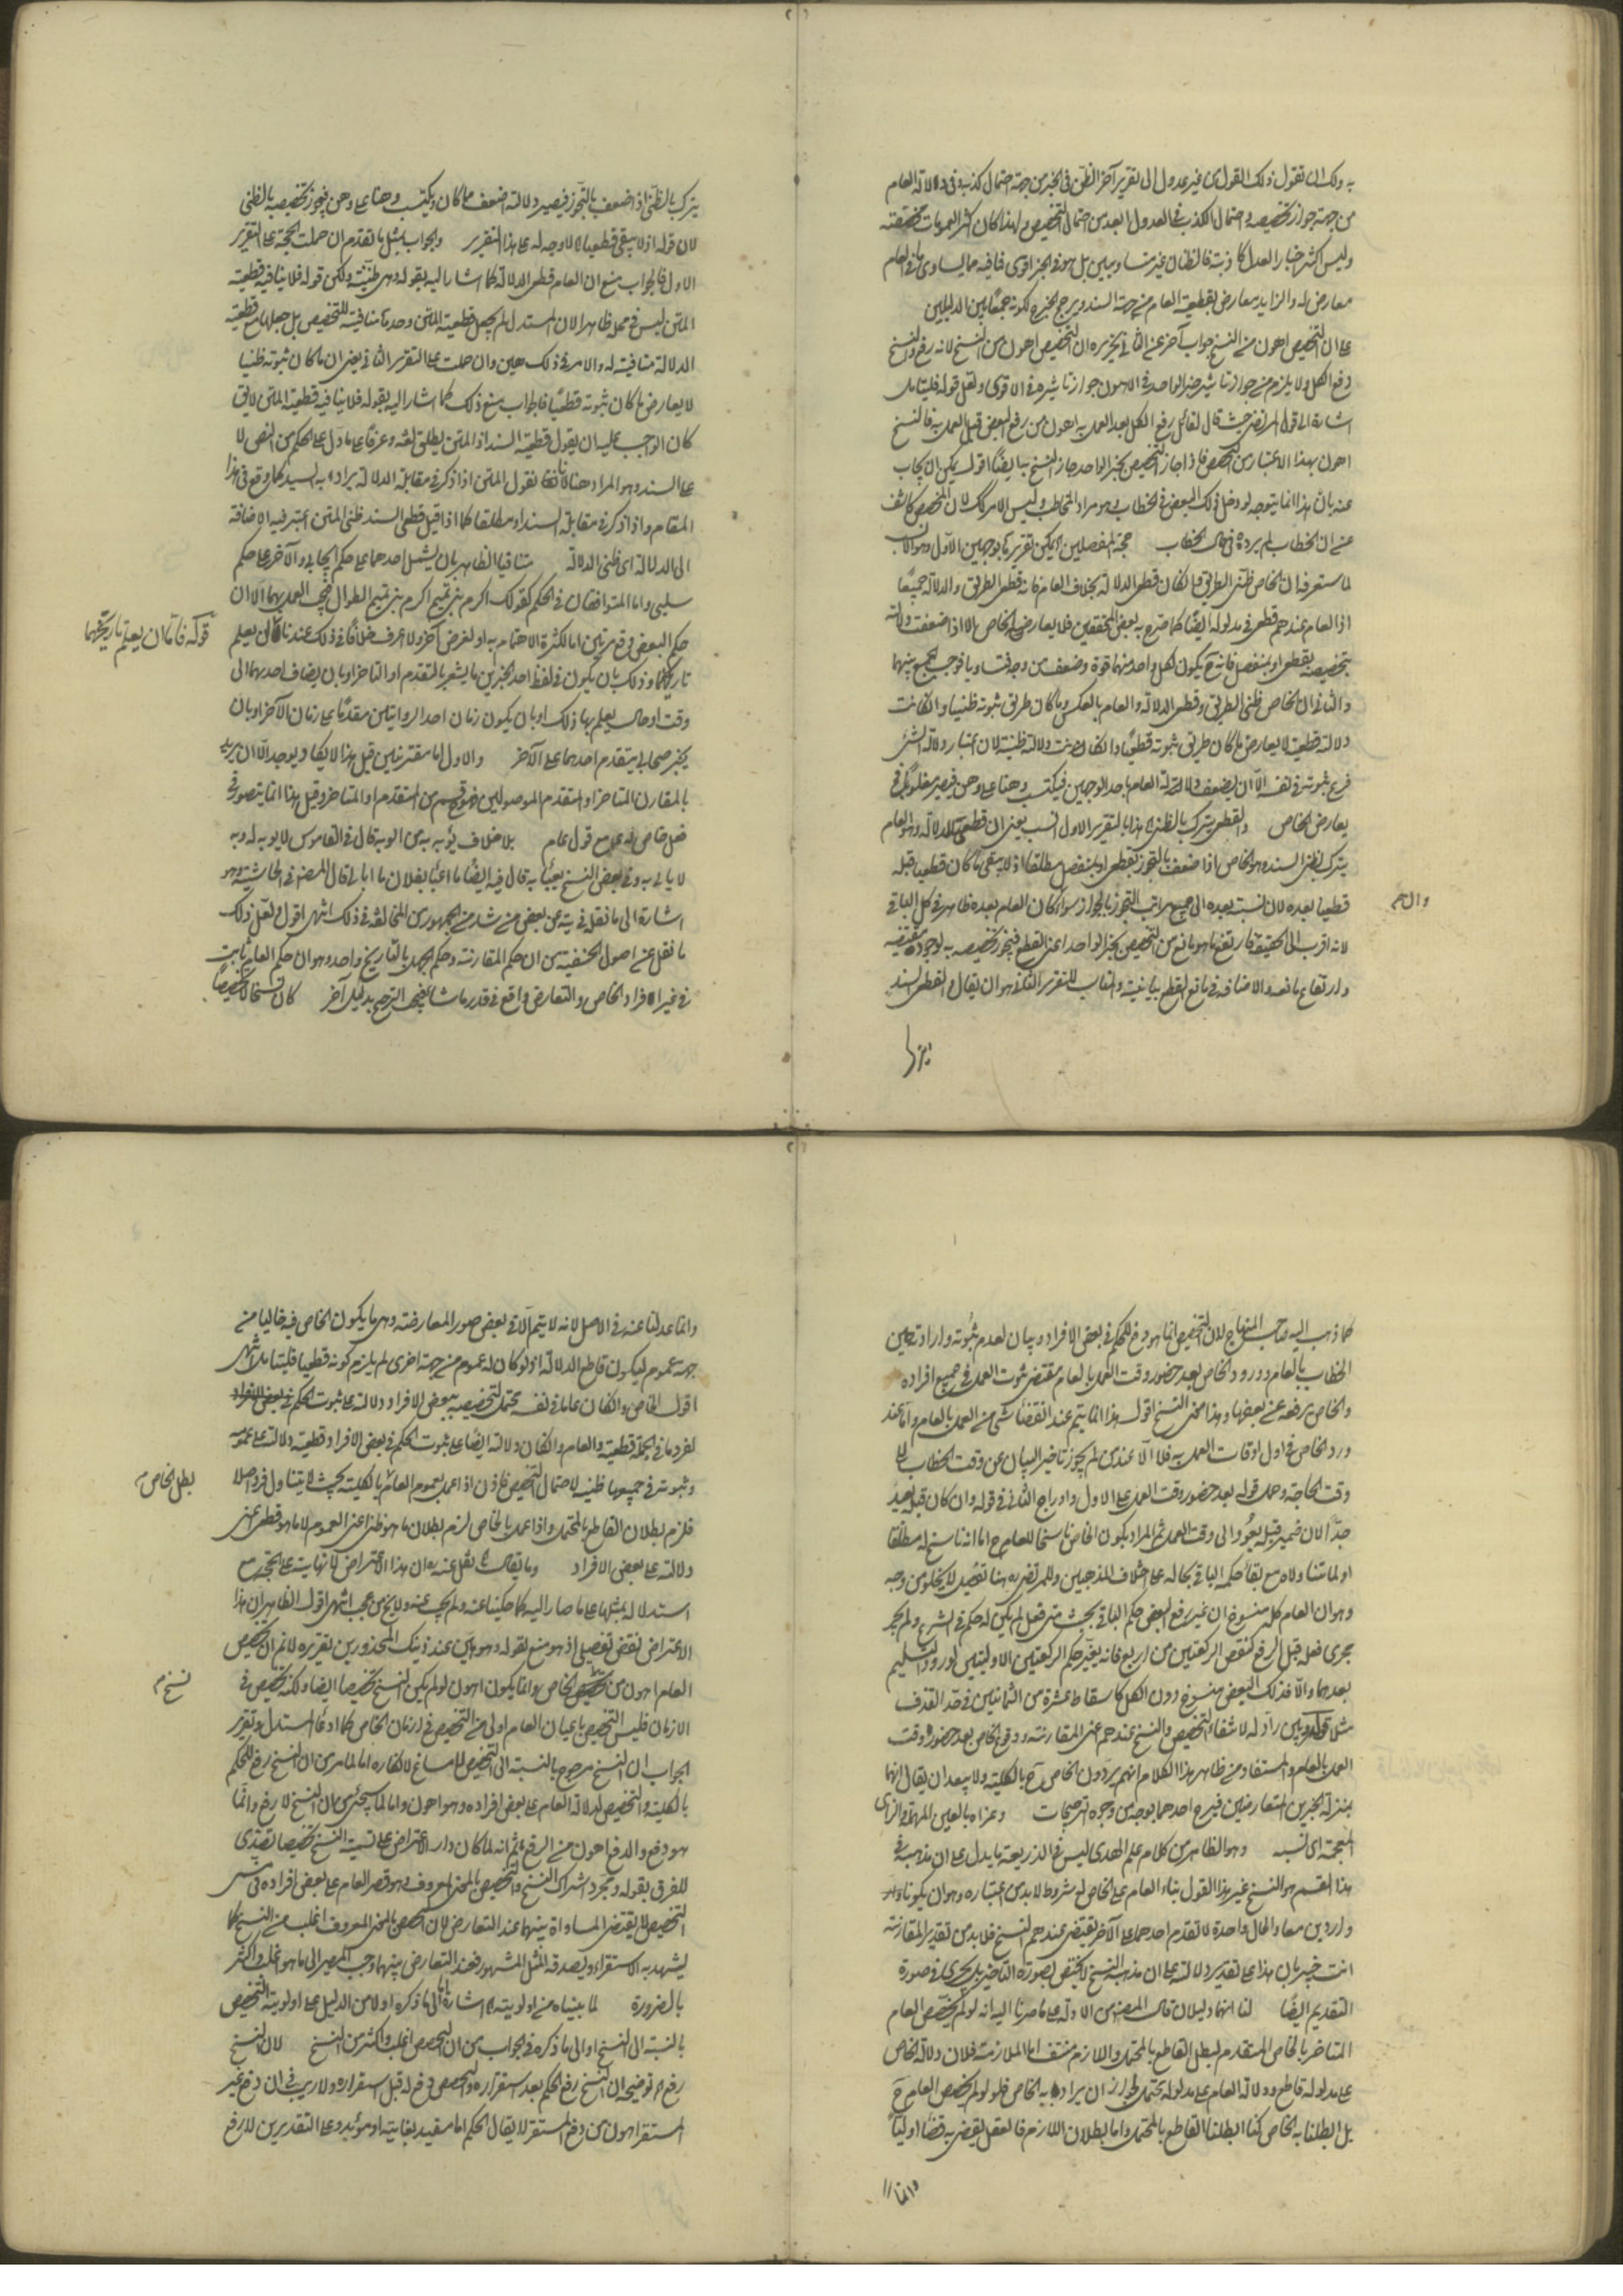 به ولك ان تقول ذلك القول من غير عدول الى تقرير آخر الظن فى الخبر من جهة احتمال كذبه وفى دلالة العام
من جهة جواز تخصيصه واحتمال الكذب فى العدول ابعد من احتمال التخصيص ولهذا كان اكثر العمومات مخصصة
وليس اكثر اخبار العدل كاذبة فالظنان غير متساويين بل هو فى الخبر اقوى فما فيه مما يساوى ما فى العام
معارض له والزايد معارض لقطعية العام من جهة السند ويرجح الخبر ح لكونه جمعا بين الدليلين
على ان التخصيص اهون من النسخ جواب آخر عن الثانى تحريره ان التخصيص اهون من النسخ لانه رفع والنسخ
رفع الكل ولا يلزم من جواز تاثير خبر الواحد فى الاهون جواز تاثيره فى الاقوى ولعل قوله فليتامل
اشارة الى قول المرتضى حيث قال لقائل رفع الكل بعد العمل به اهون من رفع البعض قبل العمل به فالنسخ
اهون بهذا الاعتبار من التخصيص فاذا جاز التخصيص بخبر الواحد جاز النسخ به ايضًا اقول يمكن ان يجاب
عنه بان هذا انما يتوجه لو دخل ذلك البعض فى الخطاب وهو مراد المخاطب وليس الامر كك لان المخصص كاشف
عن ان المخاطب لم يرده فى حال الخطاب حجة المفصلين يمكن تقريرها بوجهين الاول وهو الانسب
لما ستعرفه ان الخاص ظنى الطريق وان كان قطعى الدلالة بخلاف العام فانه قطعى الطريق والدلالة جميعًا
اذ العام عندهم قطعى فى مدلوله ايضًا كما صرح به بعض المحققين فلا يعارض الخاص الا اذا ضعفت دلالته
بتخصيصه بقطعى او بمنفصل فانه ح يكون لكل واحد منهما قوة وضعف من وجه فتساويا فوجب الجمع بينهما
والثانى ان الخاص ظنى الطريق وقطعى الدلالة والعام بالعكس وما كان طريق ثبوته ظنيا وان كانت
دلالته قطعية لا يعارض ما كان طريق ثبوته قطعيًا وان كانت دلالته ظنية لان اعتبار دلالة الشئ
فرع ثبوته فى نفسه الا ان يضعف دلالة العام باحد الوجهين فيكتسب وهنا على وهن فيصير مغلوبا فى
يعارض الخاص والقطعى يترك بالظنى هذا بالتقرير الاول انسب يعنى ان قطعى الدلالة وهو العام
يترك لظنى السند وهو الخاص اذا ضعف بالتجوز بقطعى او بمنفصل مطلقا اذ لا يبقى ما كان قطعيا قبله
قطعيا بعده لان نسبته بعده الى جميع مراتب التجوز بالجواز سواء وان كان العام بعده ظاهرا فى كل الباقى
لانه اقرب الى الحقيقة فارتفع ما هو مانع من التخصيص بخبر الواحد اعنى القطع فيجوز تخصيصه به لوجود مقتضيه
وارتفاع مانعه والاضافة فى مانع القطع بيانية والمناسب للتقرير الثانى هو ان يقال القطعى السند
والـم
يترك
يترك بالظنى اذا ضعف بالتجوز فيصير دلالته اضعف مما كان ويكتسب وهنا على وهن فيجوز تخصيصه بالظنى
لان قوله اذ لا يبقى قطعيا لا وجه له على هذا التقرير والجواب بمثل ما تقدم ان حملت الحجة على التقرير
الاول فالجواب منع ان العام قطعى الدلالة كما اشار اليه بقوله وهى ظنية ولكن قوله فلا ينافيه قطعية
المتن ليس فى محله ظاهرا لان المستدل لم يجعل قطعية المتن وحدها منافية للتخصيص بل جعلها مع قطعية
الدلالة منافية له والامر فى ذلك هين وان حملت على التقرير الثانى يعنى ان ما كان ثبوته ظنيا
لا يعارض ما كان ثبوته قطعيًا فالجواب منع ذلك كما اشار اليه بقوله فلا ينافيه قطعية المتن لا يق
كان الواجب عليه ان يقول قطعية السند اذ المتن يطلق لغة وعرفًا على ما دل على الحكم من النص لا
على السند وهو المراد هنا لانا نقول المتن اذا ذكر فى مقابلة الدلالة يراد به السند كما وقع فى هذا
المقام واذا ذكر فى مقابلة السند او مطلقا كما اذا قيل قطعى السند ظنى المتن اعتبر فيه الاضافة
الى الدلالة اى ظنى الدلالة متنافيا الظاهر بان يشتمل احدهما على حكم ايجابى والآخر على حكم
سلبى واما المتوافقان فى الحكم كقولك اكرم بنى تميم اكرم بنى تميم الطوال فيجب العمل بهما الا ان
حكم البعض وقع مرتين اما لكثرة الاهتمام به او لغرض آخر ولا اعرف خلافًا فى ذلك عندنا ان يعلم
تاريخهما وذلك بان يكون فى لفظ احد الخبرين ما يشعر بالتقدم او التاخر او بان يضاف احدهما الى
وقت او حال يعلم بها ذلك او بان يكون زمان احد الروايتين مقدمًا على زمان الآخر او بان
يخبر صحابى بتقدم احدهما على الآخر والاول اما مقترنين قيل هذا لا يكاد يوجد الا ان يريد
بالمقارن المتاخر او المتقدم الموصولين فهو قسم من المتقدم او المتاخر وقيل هذا انما يتصور فى
فعل خاص له مع قول عام بلا خلاف يؤبه به من الوبه قال فى القاموس لا يوبه له وبه
لا يبالى به وفى بعض النسخ يعبأ به قال فيه ايضًا ما اعبأ بفلان ما ابالى قال المصنف فى الحاشية هو
اشارة الى ما نقل فى يه عن بعض من شد من الجمهور من المخالفة فى ذلك انتهى اقول لعل ذلك
ما نقل عن اصول الحنفية من ان حكم المقارنة وحكم الجهل بالتاريخ واحد وهو ان حكم العام ثابت
فى غير افراد الخاص والتعارض واقع فى قدر ما شاء فيجب الترجيح بدليل آخر كان نسخا لا تخصيصًا
قوله فاما ان يعلم تاريخهما
كما ذهب اليه صاحب المنهاج لان التخصيص انما هو دفع للحكم فى بعض الافراد وبيان لعدم ثبوته وارادته حين
الخطاب بالعام وورود الخاص بعد حضور وقت العمل بالعام مقتضى ثبوت العمل فى جميع افراده
والخاص يرفعه عن بعضها وهذا معنى النسخ اقول هذا انما يتم عند انقضاء شئ من العمل بالعام واما عند
ورود الخاص فى اول اوقات العمل به فلا الا عند من لم يجوز تاخير البيان عن وقت الخطاب الى
وقت الحاجة وحمل قوله بعد حضور وقت العمل على الاول وادراج الثانى فى قوله وان كان قبله بعيد
جدًا لان ضمير قبله يعود الى وقت العمل ثم المراد بكون الخاص ناسخا للعام ح اما انه ناسخ له مطلقا
او لما تناولاه مع بقاء حكم الباقى بحاله على اختلاف المذهبين وللمرتضى ره هنا تفصيل لا يخلو من وجه
وهو ان العام كله منسوخ ان غير رفع البعض حكم الباقى بحيث متى فعل لم يكن له حكم فى الشرع ولم يجر
مجرى فعله قبل الرفع كنقص الركعتين من اربع فانه يغير حكم الركعتين الاوليتين لورود التسليم
بعدهما والا فذلك البعض منسوخ دون الكل كاسقاط عشرة من الثمانين فى حد القذف
مثلا قوله وبين رآد له لانتفاء التخصيص والنسخ عندهم عنى المقارنة ووقوع الخاص بعد حضور وقت
العمل بالعام والمستفاد من ظاهر هذا الكلام انهم يردون الخاص ح بالكلية ولا يبعد ان يقال انهما
بمنزلة الخبرين المتعارضين فيرجح احدهما بوجه من وجوه الترجيحات وعزاه بالعين المهملة والزاى
المعجمة اى نسبه وهو الظاهر من كلام علم الهدى ليس فى الذريعة ما يدل على ان مذهبه فى
هذا القسم هو النسخ غير هذا القول بناء العام على الخاص له شروط لا بد من اعتباره وهو ان يكونا
واردين معا والحال واحدة لا تقدم احدهما على الآخر يقتضى عندهم النسخ فلا بد من تقدير المقارنة
انت خبير بان هذا على تقدير دلالته على ان مذهبه النسخ لا يختص بصورة التاخير بل يجرى فى صورة
التقديم ايضًا لنا انهما دليلان قال المصنف من الادلة على ما صرنا اليه انه لو لم يخصص العام
المتاخر بالخاص المتقدم لبطل القاطع بالمحتمل واللازم منتف اما الملازمة فلان دلالة الخاص
على مدلوله قاطع ودلالة العام على مدلوله محتمل لجواز ان يراد به الخاص فلو لم يخصص العام ح
بل ابطلنا به الخاص كنا ابطلنا القاطع بالمحتمل واما بطلان اللازم فالعقل يقضى به قضاء اوليًا
وانما
وانما عدلنا عنه فى الاصل لانه لا يتم الا فى بعض صور المعارضة وهى ما يكون الخاص فيه خاليا من
جهة عموم ليكون قاطع الدلالة اذ لو كان له عموم من جهة اخرى لم يلزم كونه قطعيا فليتامل انتهى
اقول الخاص وان كان عاما فى نفسه محتمل لتخصيصه ببعض الافراد دلالته على ثبوت الحكم
لفرد ما فى الجملة قطعية والعام وان كان دلالته ايضًا على ثبوت الحكم فى بعض الافراد قطعية دلالته على عمومه
وثبوته فى جميعها ظنية لاحتمال التخصيص فاذن اذا عمل بعموم العام بالكلية بحيث لا يتناول فردا اصلا
فلزم بطلان القاطع بالمحتمل واذا عمل بالخاص لزم بطلان ما هو ظنى اعنى العموم لا ما هو قطعى اعنى
دلالته على بعض الافراد وما يقال نقل عنه ره ان هذا الاعتراض كأنها يته على الحجة مع
استدلاله بمثلها على ما صار اليه كما حكيناه عنه ولم يجب عنه ولا يخ من عجب انتهى اقول الظاهر ان هذا
الاعتراض نقض تفصيلى اذ هو منع لقوله وهو اهون عند ذينك المحذورين تقريره لا نم ان تخصيص
العام اهون من تخصيص الخاص وانما يكون اهون لو لم يكن النسخ تخصيصا ايضا ولكنه تخصيص فى
الازمان فليس التخصيص باعيان العام اولى من التخصيص فى ازمان الخاص كما ادعاه المستدل وتقرير
الجواب ان النسخ مرجوح بالنسبة الى التخصيص لا مساغ لانكاره اما لما مر من ان النسخ رفع للحكم
بالكلية والتخصيص لدلالة العام على بعض افراده وهو اهون واما لما سيجئ من ان النسخ لا رفع وانما
هو دفع والدفع اهون من الرفع ثم انه لما كان دار الاعتراض على تسمية النسخ تخصيصا تصدى
للفرق بقوله ومجرد اشتراك النسخ والتخصيص بالمعنى المعروف وهو قصر العام على بعض افراده فى مسمى
التخصيص لا يقتضى المساواة بينهما عند التعارض لان التخصيص بالمعنى المعروف اغلب من النسخ كما
يشهد به الاستقراء ويصدقه المثل المشهور فعند التعارض بينهما وجب المصير الى ما هو اغلب واكثر
بالضرورة لما بيناه من اولويته اشارة اما الى ما ذكره اولا من الدليل على اولوية التخصيص
بالنسبة الى النسخ او الى ما ذكره فى الجواب من ان التخصيص اغلب واكثر من النسخ لان النسخ
رفع ح توضيحه ان النسخ رفع الحكم بعد استقراره والتخصيص دفع له قبل استقراره ولا ريب فى ان دفع غير
المستقر اهون من رفع المستقر لا يقال الحكم اما مقيد بغاية او مؤبد وعلى التقديرين لا رفع
بطل الخاص م
نسخ م